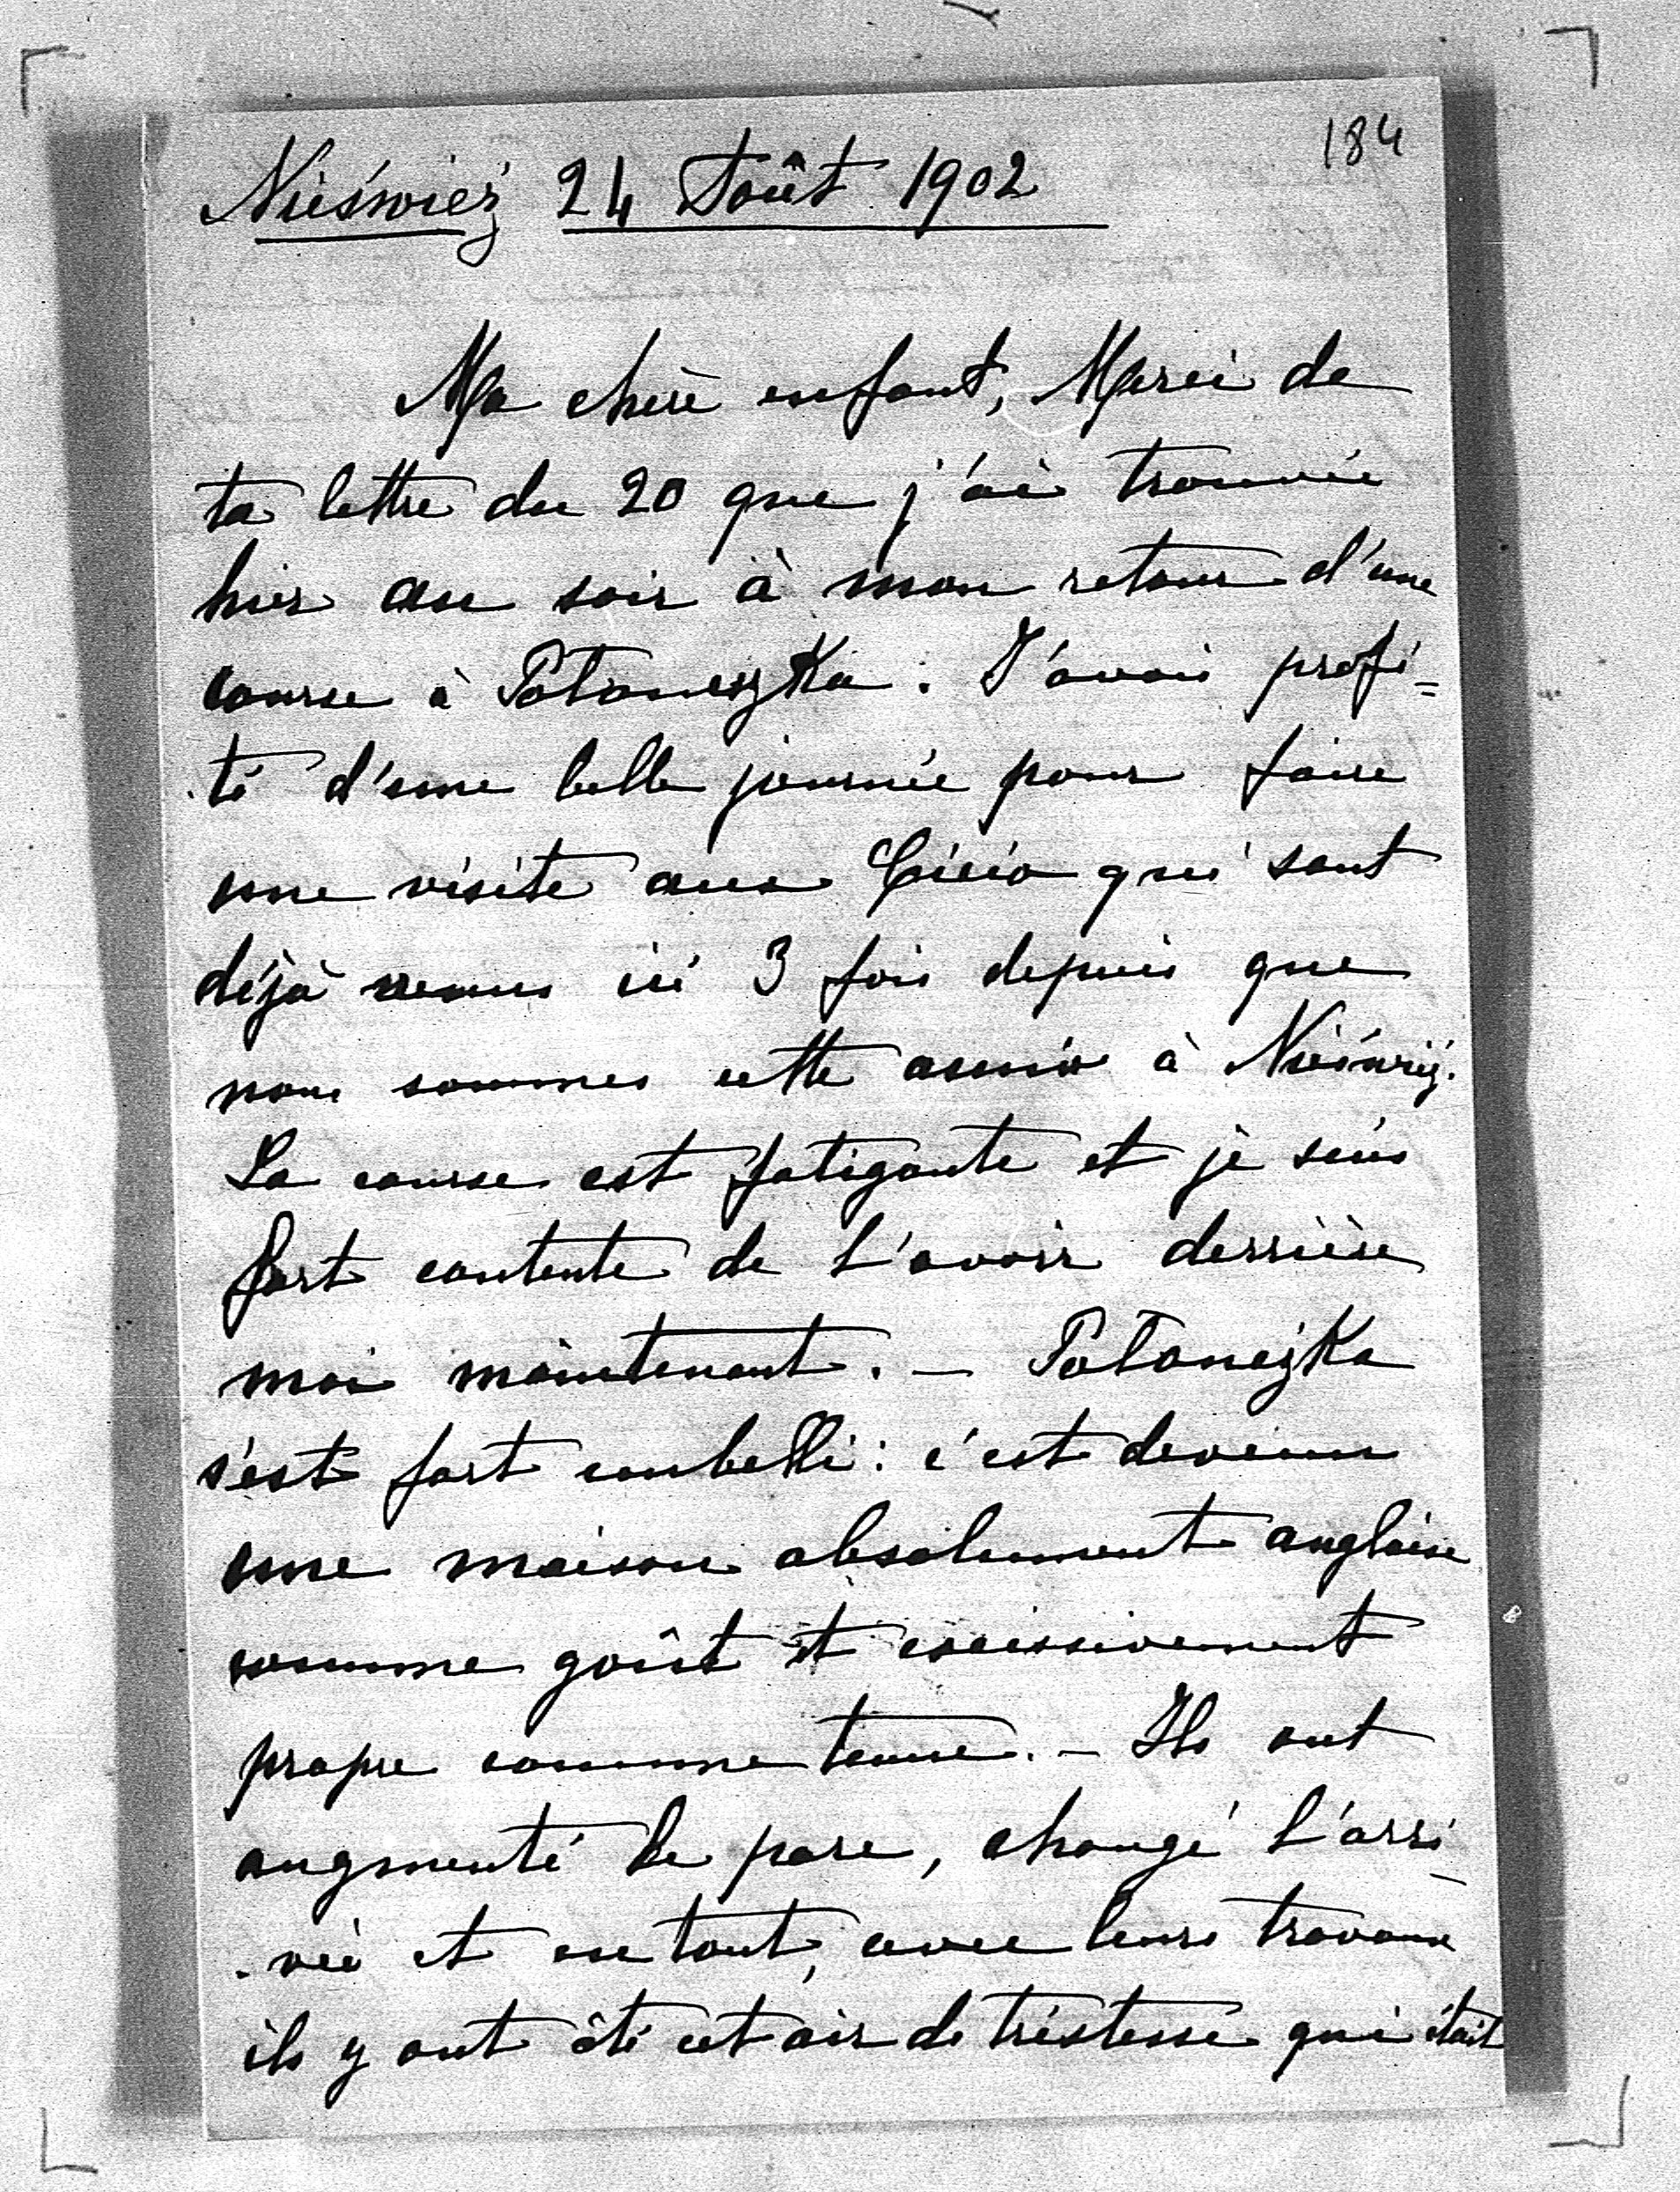 184
Nieśwież 24 Août 1902
Ma chère enfant, Merci de
ta lettre du 20 que j'ai trouvée
hier au soir à mon retour d'une
course à Potoneszka. J'avais profi=
té d'une belle journée pour faire
une visite aux qui sont
déjà venus ici 3 fois depuis que
nous sommes cette année à Nieświż.
La course est fatigante et je suis
fort contente de l'avoir derrière
moi maintenant. – Potoneżka
s'est fort embelli: c'est devenu
une maison absolument anglaise
comme goût et excessivement
propre comme tenue. – Ils ont
augmenté le parc, changé l'arri-
vée et en tout, avec leurs travaux
ils y ont ôté cet air de tristesse qui était